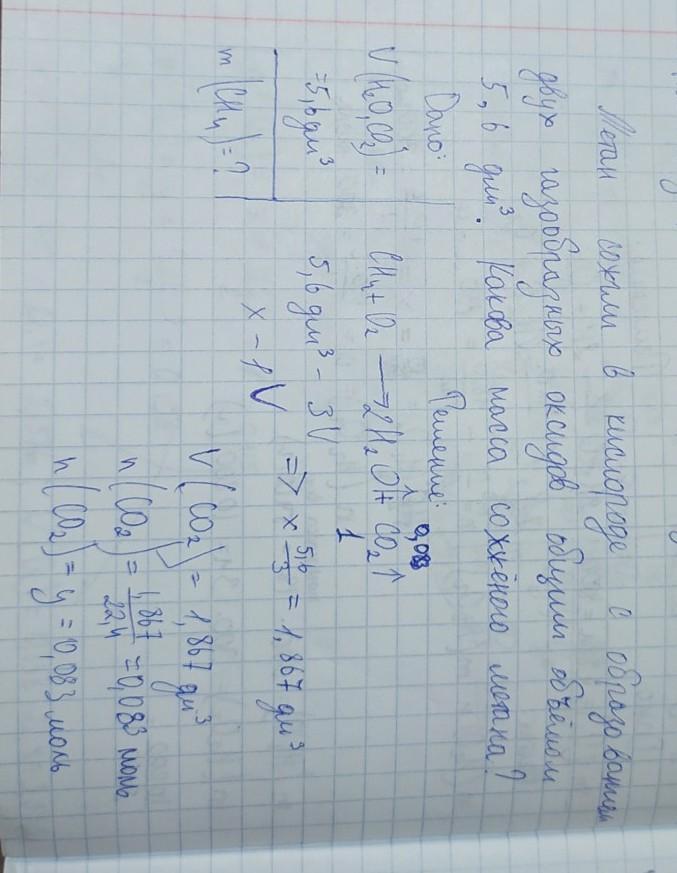 Метан сожгли в кислороде с образованием
двух газообразных оксидов общим объёмом
5,6 дм³. Какова масса сожжёного метана?
Дано:
Решение:
V(H₂O, CO₂) =
= 5,6 дм³
m(CH₄) = ?
0,083
CH₄ + O₂ → 2H₂O↑ + CO₂↑
1
5,6 дм³ – 3V
x – 1V
=> x 5,6/3 = 1,867 дм³
V(CO₂) = 1,867 дм³
n(CO₂) = 1,867/22,4 = 0,083 моль
n(CO₂) = y = 0,083 моль